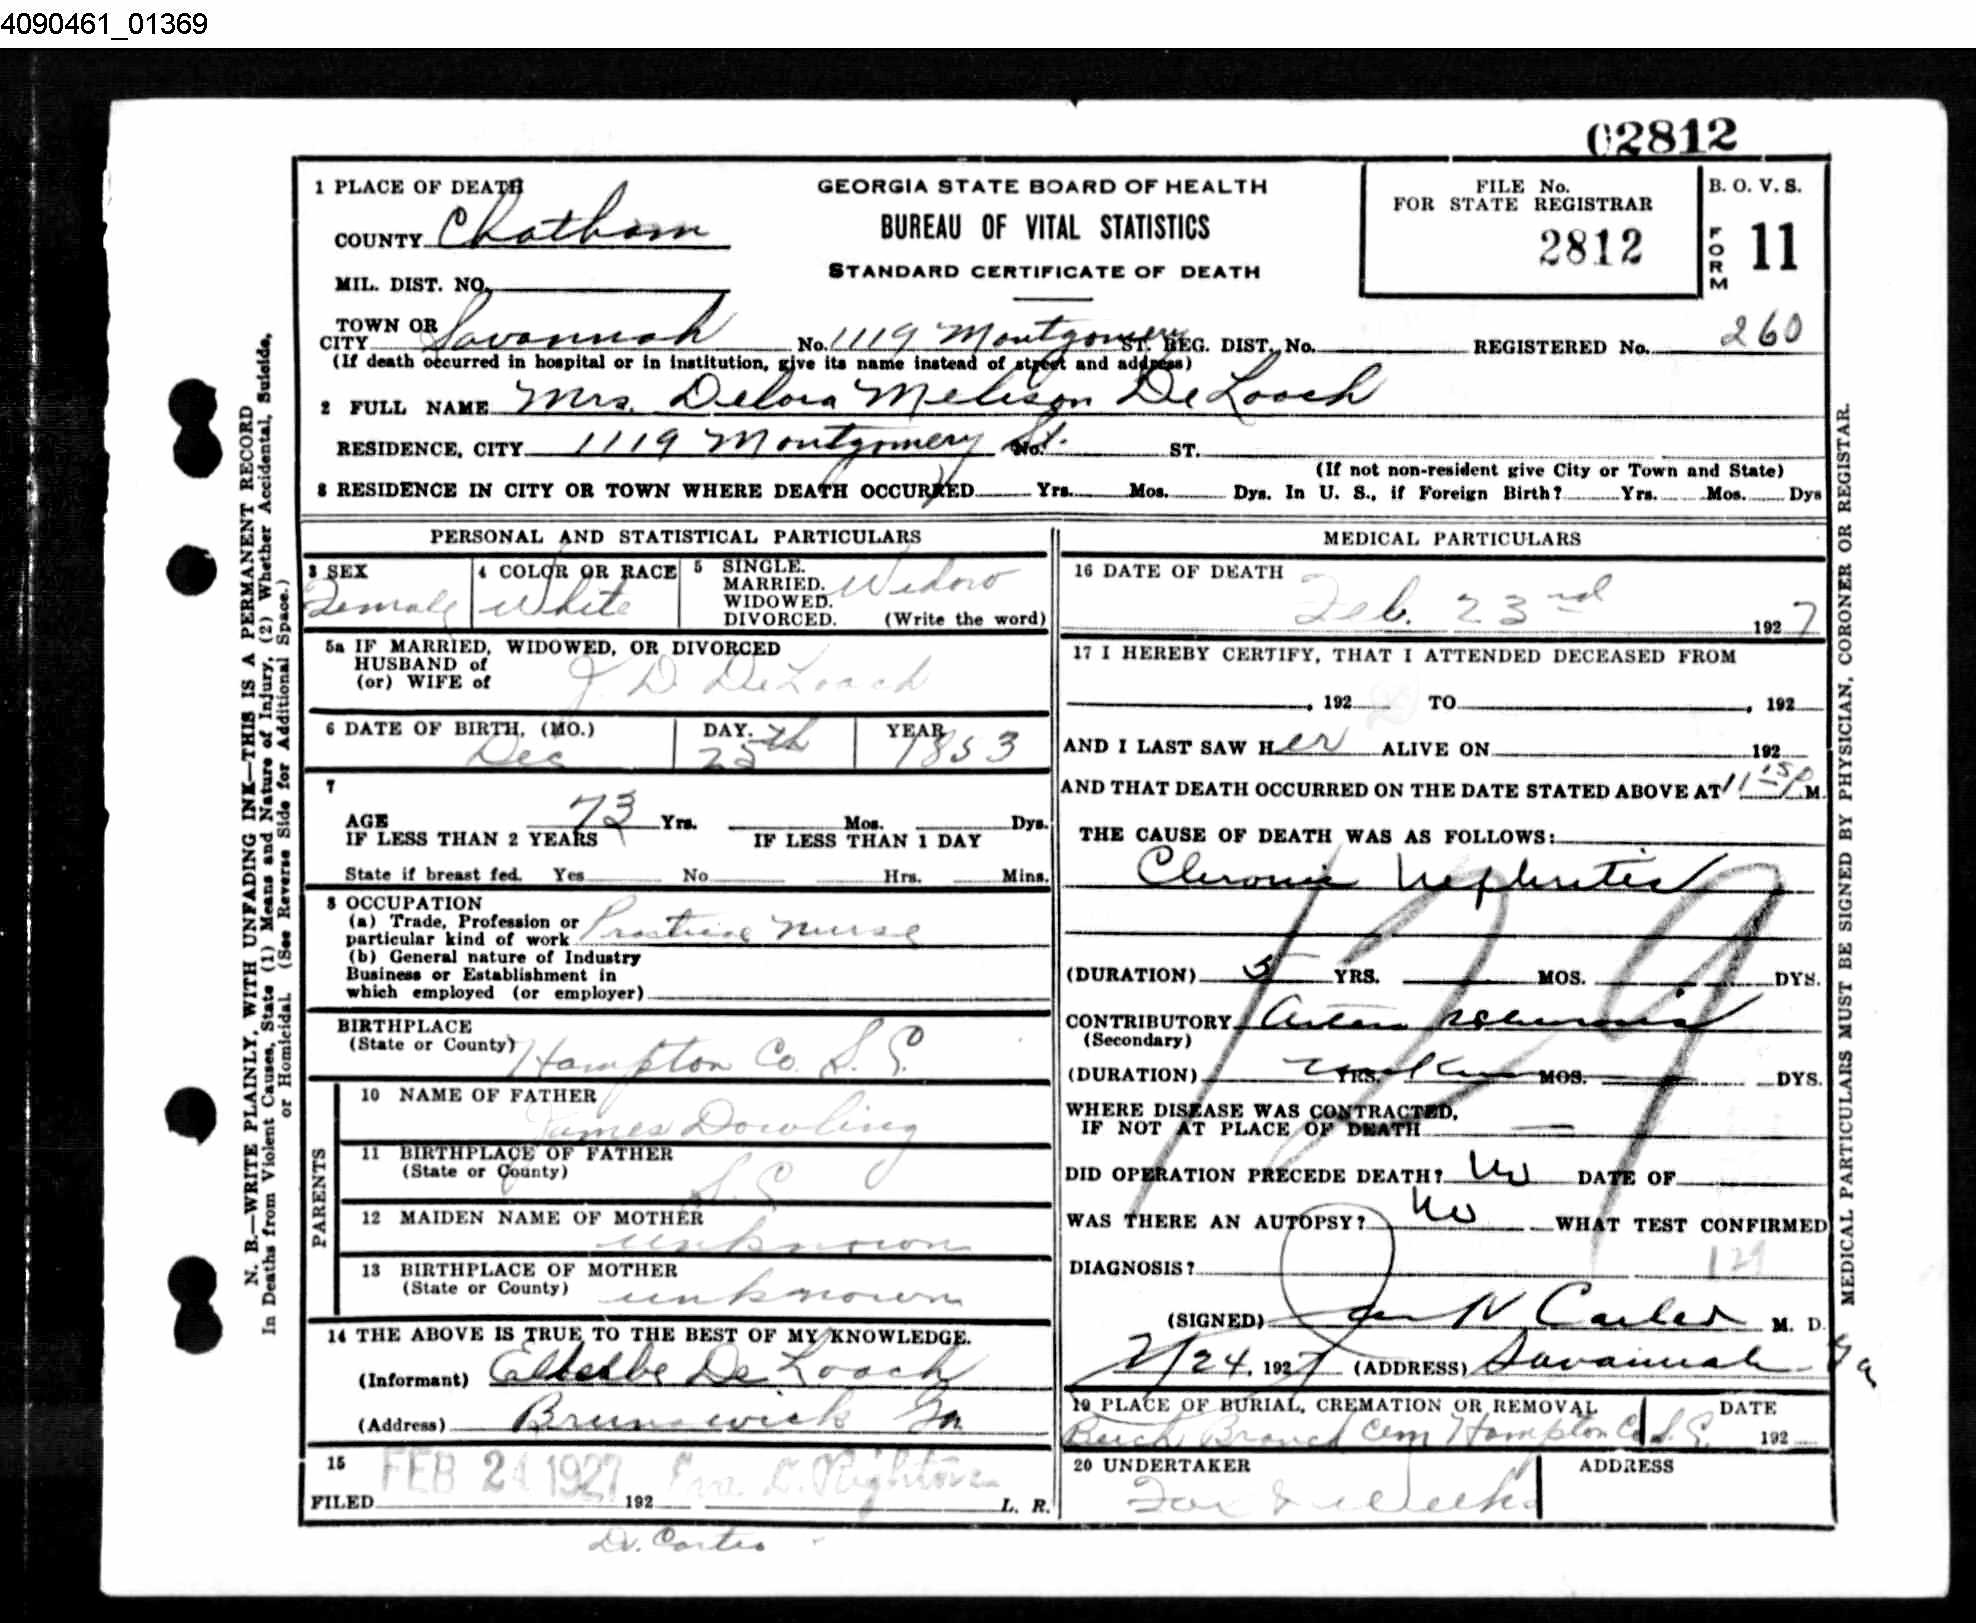 4090461_01369
02812
1 PLACE OF DEATH
COUNTY Chatham
MIL. DIST. NO.
GEORGIA STATE BOARD OF HEALTH
BUREAU OF VITAL STATISTICS
STANDARD CERTIFICATE OF DEATH
FILE No.
FOR STATE REGISTRAR
2812
B. O. V. S.
FORM 11
TOWN OR
CITY Savannah No. 1119 Montgomery ST. REG. DIST. No. REGISTERED No. 260
(If death occurred in hospital or in institution, give its name instead of street and address)
2 FULL NAME Mrs. Delora Melison De Loach
RESIDENCE, CITY 1119 Montgomery St. No. ST.
(If not non-resident give City or Town and State)
8 RESIDENCE IN CITY OR TOWN WHERE DEATH OCCURRED Yrs. Mos. Dys. In U. S., if Foreign Birth? Yrs. Mos. Dys
PERSONAL AND STATISTICAL PARTICULARS
3 SEX Female
4 COLOR OR RACE White
5 SINGLE. MARRIED. WIDOWED. DIVORCED. Widow (Write the word)
5a IF MARRIED, WIDOWED, OR DIVORCED
HUSBAND of
(or) WIFE of J. D. DeLoach
6 DATE OF BIRTH, (MO.) Dec DAY. 25th YEAR 1853
7
AGE 73 Yrs. Mos. Dys.
IF LESS THAN 2 YEARS IF LESS THAN 1 DAY
State if breast fed. Yes No Hrs. Mins.
8 OCCUPATION
(a) Trade, Profession or
particular kind of work Practical Nurse
(b) General nature of Industry
Business or Establishment in
which employed (or employer)
BIRTHPLACE
(State or County) Hampton Co. S. C.
PARENTS
10 NAME OF FATHER
James Dowling
11 BIRTHPLACE OF FATHER
(State or County) S. C.
12 MAIDEN NAME OF MOTHER
unknown
13 BIRTHPLACE OF MOTHER
(State or County) unknown
14 THE ABOVE IS TRUE TO THE BEST OF MY KNOWLEDGE.
(Informant) De Loach
(Address) Brunswick Ga
15 FEB 24 1927
FILED 192 L. R.
Dr. Carter
MEDICAL PARTICULARS
16 DATE OF DEATH
Feb. 23rd 1927
17 I HEREBY CERTIFY, THAT I ATTENDED DECEASED FROM
, 192 TO , 192
AND I LAST SAW Her ALIVE ON 192
AND THAT DEATH OCCURRED ON THE DATE STATED ABOVE AT 11 15 P M.
THE CAUSE OF DEATH WAS AS FOLLOWS:
Chronic Nephritis
129
(DURATION) 5 YRS. MOS. DYS.
CONTRIBUTORY Arterio sclerosis
(Secondary)
(DURATION) unknown YRS. MOS. DYS.
WHERE DISEASE WAS CONTRACTED,
IF NOT AT PLACE OF DEATH
DID OPERATION PRECEDE DEATH? No DATE OF
WAS THERE AN AUTOPSY? No WHAT TEST CONFIRMED
129
DIAGNOSIS?
(SIGNED) N Carter M. D.
2/24, 1927 (ADDRESS) Savannah Ga
19 PLACE OF BURIAL, CREMATION OR REMOVAL DATE
Beech Branch Cem Hampton Co S. C. 192
20 UNDERTAKER ADDRESS
Fox & Weeks
N. B.—WRITE PLAINLY, WITH UNFADING INK—THIS IS A PERMANENT RECORD
In Deaths from Violent Causes, State (1) Means and Nature of Injury, (2) Whether Accidental, Suicide,
or Homicidal. (See Reverse Side for Additional Space.)
MEDICAL PARTICULARS MUST BE SIGNED BY PHYSICIAN, CORONER OR REGISTRAR.